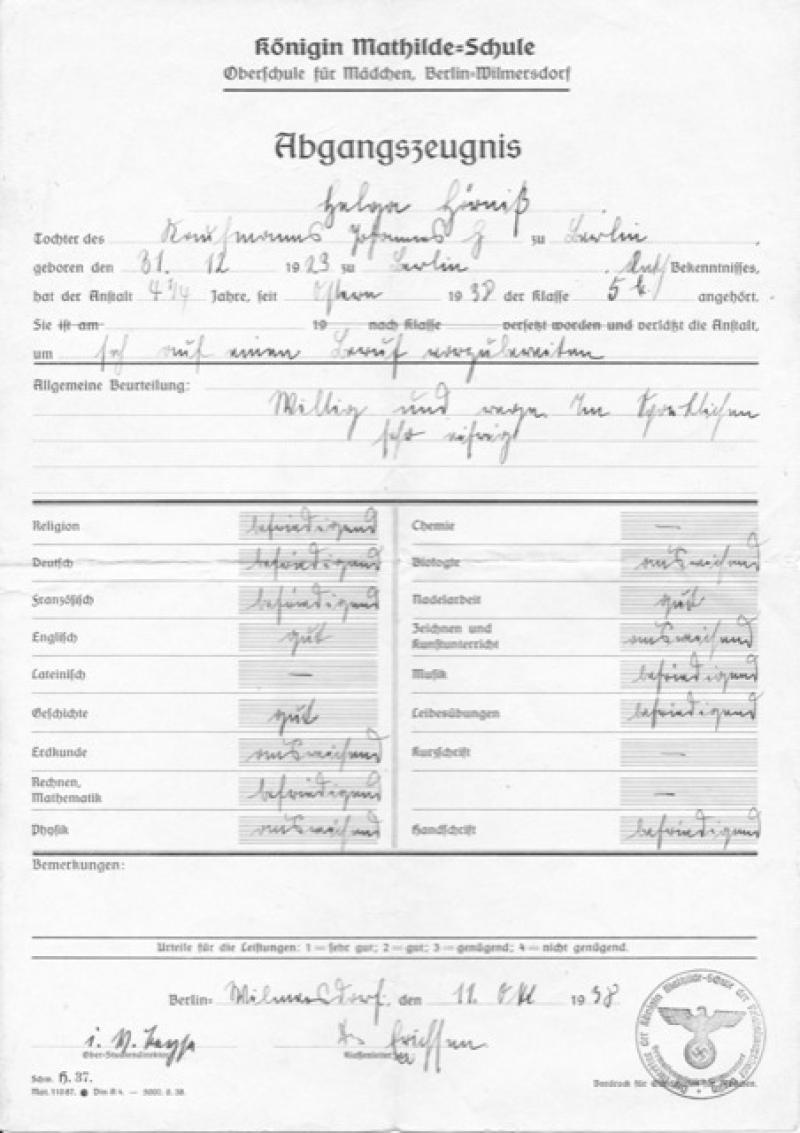 Königin Mathilde=Schule
Oberschule für Mädchen, Berlin=Wilmersdorf
Abgangszeugnis
Helga Hörniß
Tochter des Kaufmanns Johannes H zu Berlin .
geboren den 31. 12 1923 zu Berlin , Bekenntnisses,
hat der Anstalt 4 1/4 Jahre, seit Ostern 1938 der Klasse 5 b angehört.
Sie ist am 19 nach Klasse versetzt worden und verläßt die Anstalt,
um sich auf einen Beruf vorzubereiten
Allgemeine Beurteilung:
Willig und rege. Im Sportlichen
sehr eifrig
Religion befriedigend Chemie —
Deutsch befriedigend Biologie ausreichend
Französisch befriedigend Nadelarbeit gut
Englisch gut Zeichnen und Kunstunterricht ausreichend
Lateinisch — Musik befriedigend
Geschichte gut Leibesübungen befriedigend
Erdkunde ausreichend Kurzschrift —
Rechnen, Mathematik befriedigend —
Physik ausreichend Handschrift befriedigend
Bemerkungen:
Urteile für die Leistungen: 1 = sehr gut; 2 = gut; 3 = genügend; 4 = nicht genügend.
Berlin= Wilmersdorf, den 11. Okt 1938
i. V.
Erichsen
Ober-Studiendirektor Klassenleiter
Schw. H. 37.
Mat. 11087. ● Din A 4. — 5000. 8. 38.